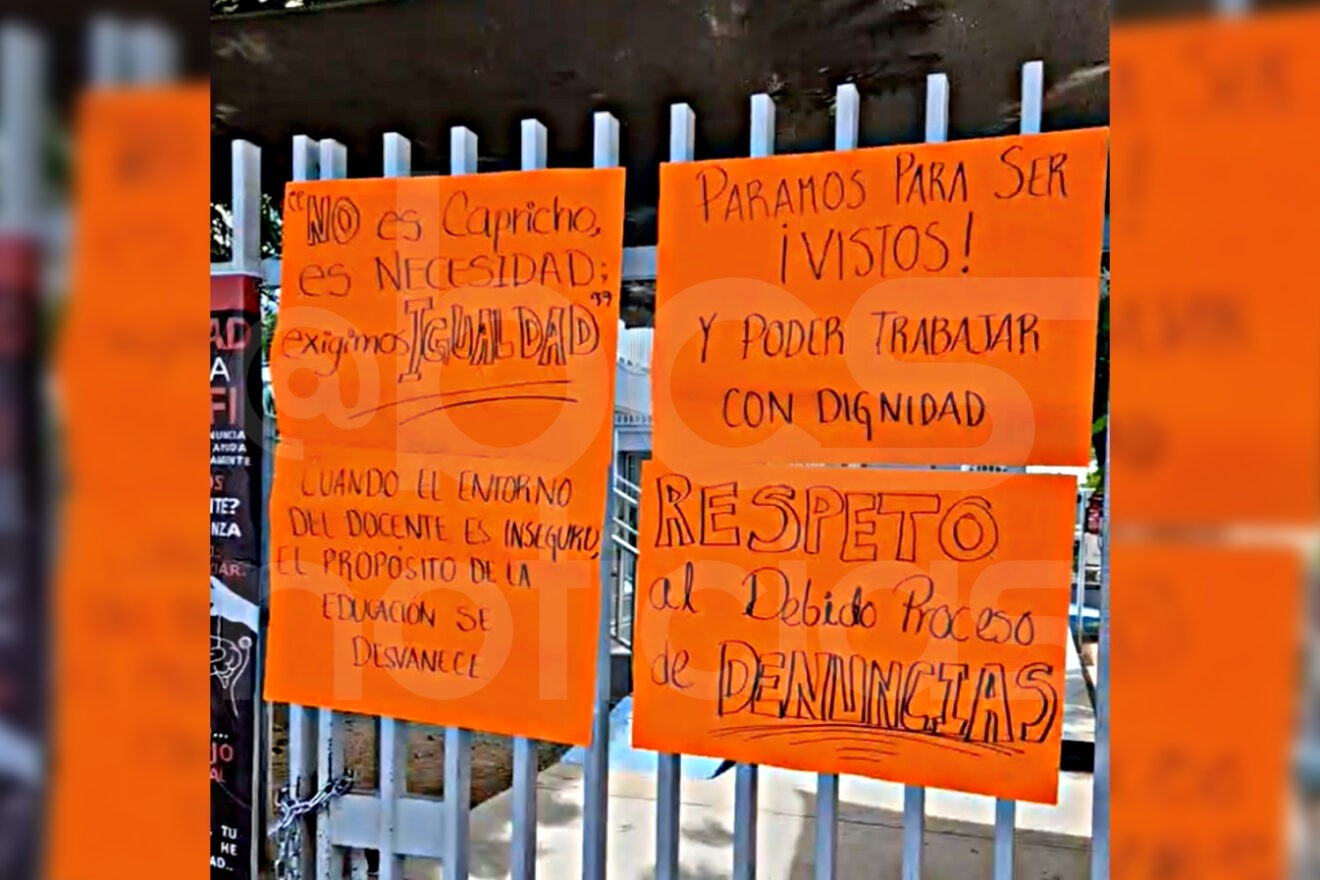 “NO es Capricho,
es NECESIDAD;
exigimos IGUALDAD”
CUANDO EL ENTORNO
DEL DOCENTE ES INSEGURO,
EL PROPÓSITO DE LA
EDUCACIÓN SE
DESVANECE
PARAMOS PARA SER
¡VISTOS!
Y PODER TRABAJAR
CON DIGNIDAD
RESPETO
al Debido Proceso
de DENUNCIAS
@bcs
noticias
AD
A
FI
NUNCIA
AYUDA
AMENTE
OS
NTE?
NZA
DAR.
...
JO
AL
TU
HE
AD...